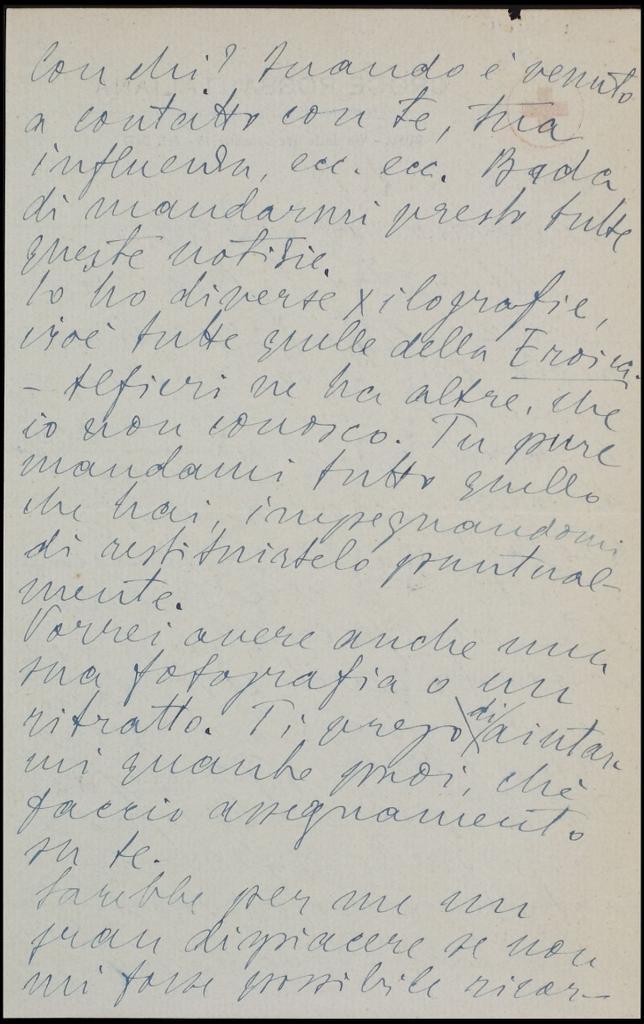 Con chi? Quando è venuto
a contatto con te, tua
influenza, ecc. ecc. Bada
di mandarmi presto tutte
queste notizie.
Io ho diverse xilografie,
cioè tutte quelle della Eroica.
- Alfieri ne ha altre, che
io non conosco. Tu pure
mandami tutto quello
che hai, impegnandomi
di restituirtelo puntual-
mente.
Vorrei avere anche una
sua fotografia o un
ritratto. Ti prego di aiutar-
mi quanto puoi, chè
faccio assegnamento
su te.
Sarebbe per me un
gran dispiacere se non
mi fosse possibile ricor-